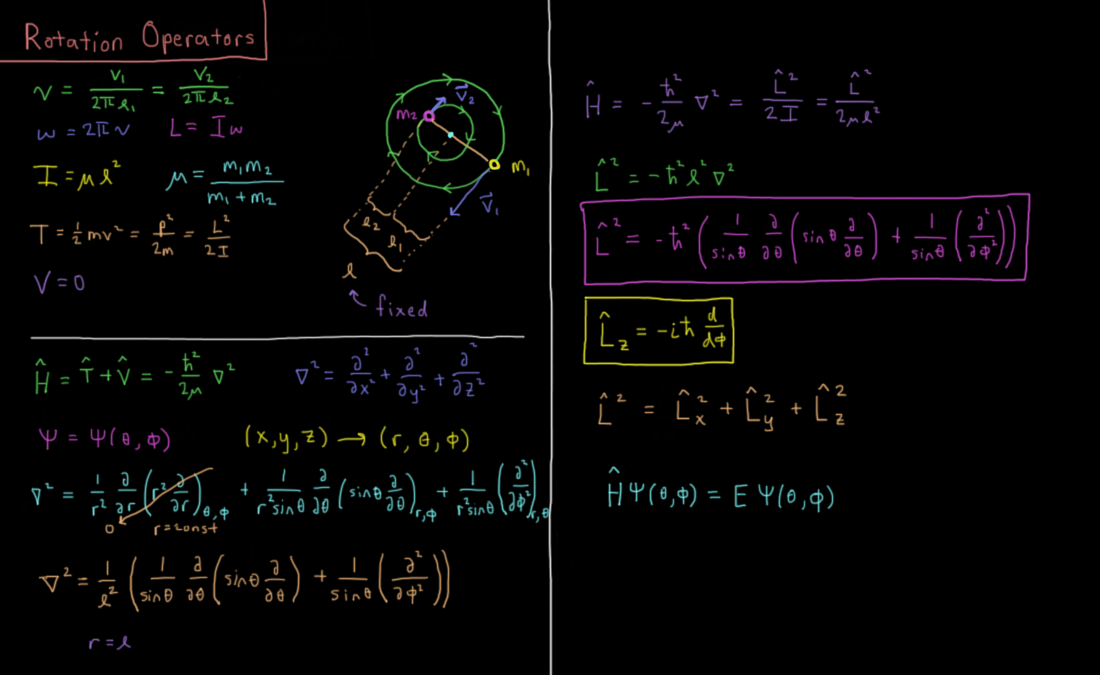 Rotation Operators
ν = v₁/(2π l₁) = v₂/(2π l₂)
ω = 2πν    L = Iω
I = μl²    μ = m₁m₂/(m₁ + m₂)
T = ½mv² = p²/2m = L²/2I
V = 0
m₂
v⃗₂
m₁
v⃗₁
l₂
l₁
l
fixed
Ĥ = T̂ + V̂ = -ħ²/2μ ∇²    ∇² = ∂²/∂x² + ∂²/∂y² + ∂²/∂z²
Ψ = Ψ(θ,φ)    (x,y,z) → (r, θ, φ)
∇² = 1/r² ∂/∂r (r² ∂/∂r)θ,φ + 1/(r² sinθ) ∂/∂θ (sinθ ∂/∂θ)r,φ + 1/(r² sinθ) (∂²/∂φ²)r,θ
0    r=const
∇² = 1/l² (1/sinθ ∂/∂θ (sinθ ∂/∂θ) + 1/sinθ (∂²/∂φ²))
r = l
Ĥ = -ħ²/2μ ∇² = L̂²/2I = L̂²/2μl²
L̂² = -ħ² l² ∇²
L̂² = -ħ² (1/sinθ ∂/∂θ (sinθ ∂/∂θ) + 1/sinθ (∂²/∂φ²))
L̂z = -iħ d/dφ
L̂² = L̂x² + L̂y² + L̂z²
ĤΨ(θ,φ) = E Ψ(θ,φ)